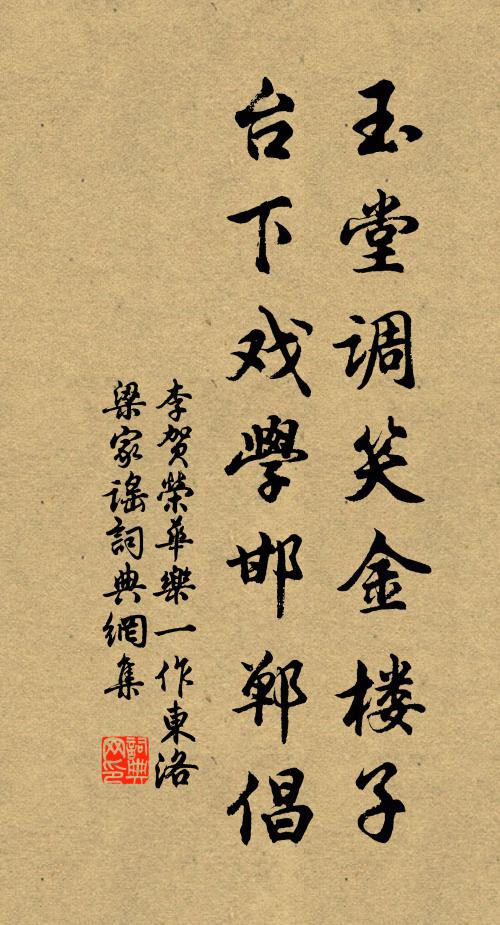 玉堂调笑金楼子
台下戏學邯鄲倡
李賀榮華樂一作東洛
梁家謠詞典網集
詞典网印